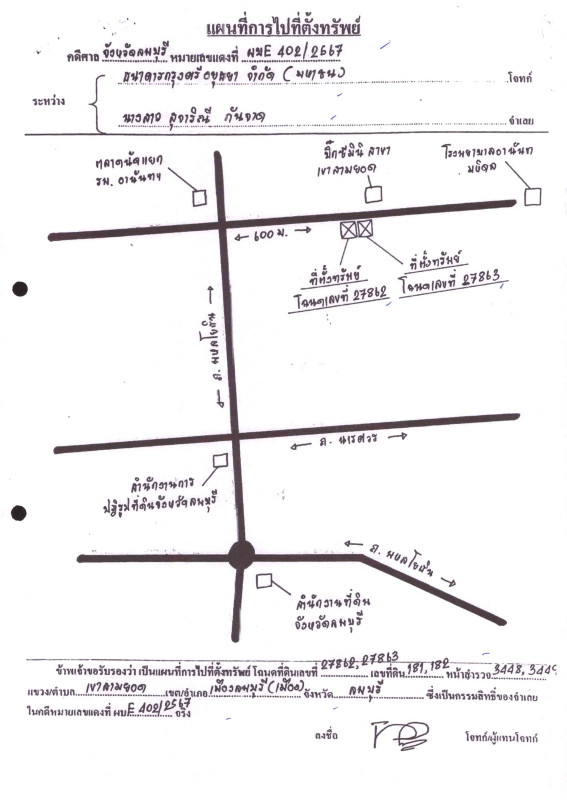 แผนที่การไปที่ตั้งทรัพย์
คดีศาล จังหวัดลพบุรี หมายเลขแดงที่ ผบE 402/2567
ธนาคารกรุงศรีอยุธยา จำกัด (มหาชน) โจทก์
ระหว่าง
นางสาว สุจาริณี กันจาด จำเลย
ตลาดนัดแยก
รพ. อานันทฯ
บิ๊กซีมินิ สาขา
เขาสามยอด
โรงพยาบาลอานันท
มหิดล
600 ม.
ที่ตั้งทรัพย์
โฉนดเลขที่ 27862
ที่ตั้งทรัพย์
โฉนดเลขที่ 27863
ถ. พหลโยธิน
ถ. นเรศวร
สำนักงานการ
ปฏิรูปที่ดินจังหวัดลพบุรี
ถ. พหลโยธิน
สำนักงานที่ดิน
จังหวัดลพบุรี
ข้าพเจ้าขอรับรองว่า เป็นแผนที่การไปที่ตั้งทรัพย์ โฉนดที่ดินเลขที่ 27862, 27863 เลขที่ดิน 181, 182 หน้าสำรวจ 3448, 3449
แขวง/ตำบล เขาสามยอด เขต/อำเภอ เมืองลพบุรี (เมือง) จังหวัด ลพบุรี ซึ่งเป็นกรรมสิทธิ์ของจำเลย
ในคดีหมายเลขแดงที่ ผบE 402/2567 จริง
ลงชื่อ โจทก์/ผู้แทนโจทก์